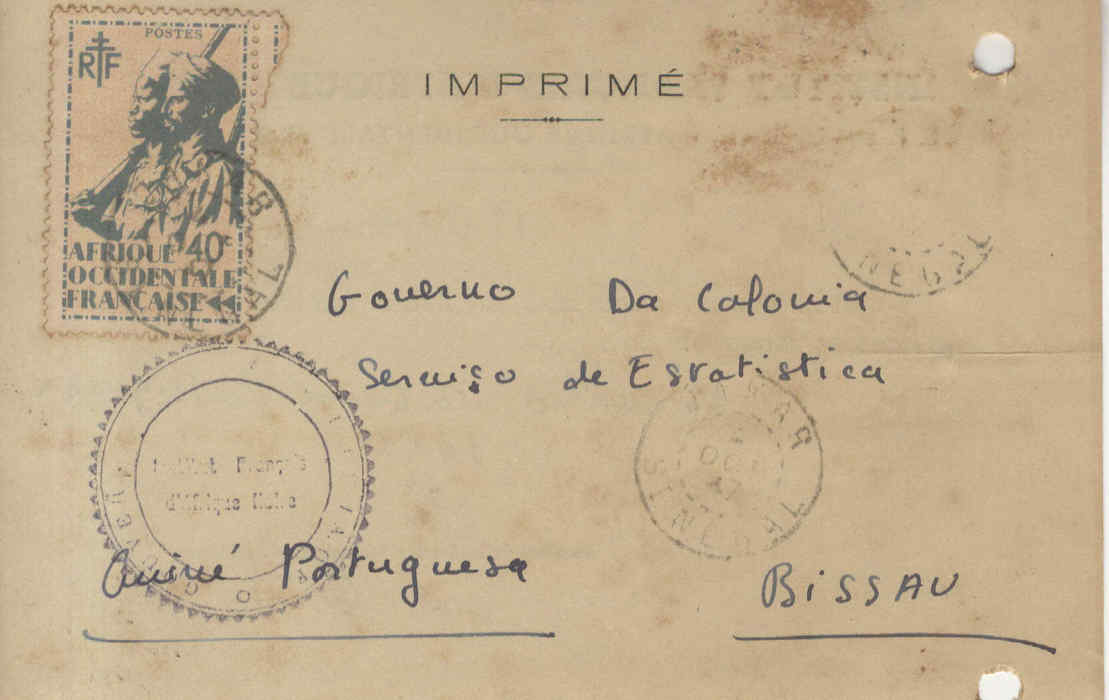 POSTES
RF
AFRIQUE 40c
OCCIDENTALE
FRANÇAISE
IMPRIMÉ
Governo Da Colonia
Serviço de Estatistica
DAKAR
OCT
47
SENEGAL
Institut Français
d'Afrique Noire
Guiné Portuguesa BISSAU